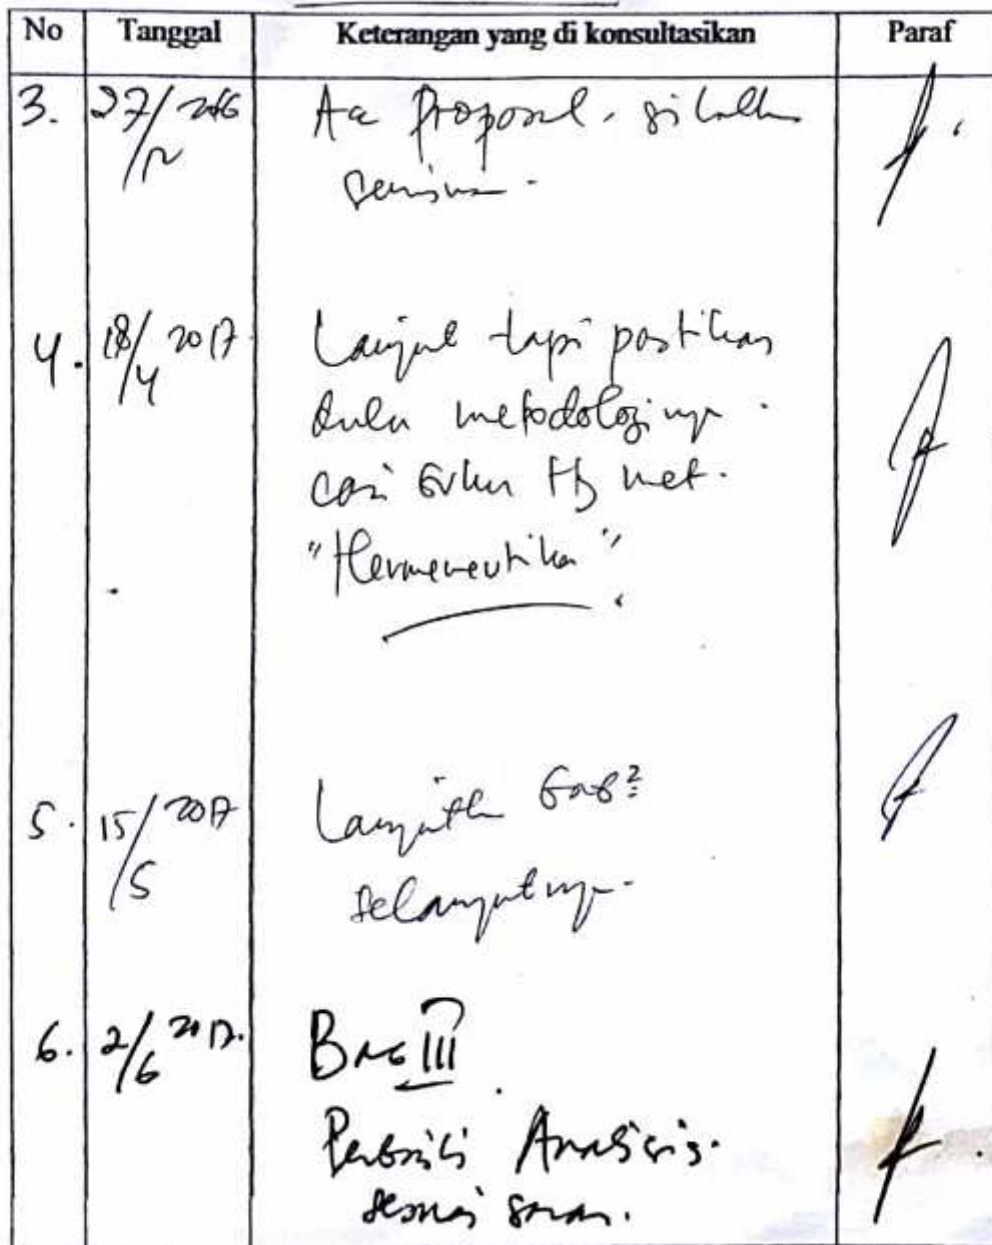 No Tanggal Keterangan yang di konsultasikan Paraf
3. 27/12 2016 Acc Proposal, silahkan
seminar.
4. 18/4 2017 Lanjut tapi pastikan
dulu metodologinya.
cari buku ttg met.
"Hermeneutika".
5. 15/5 2017 Lanjutkan bab²
selanjutnya.
6. 2/6 2017. BAB III.
Perbaiki Analisis.
sesuai saran.